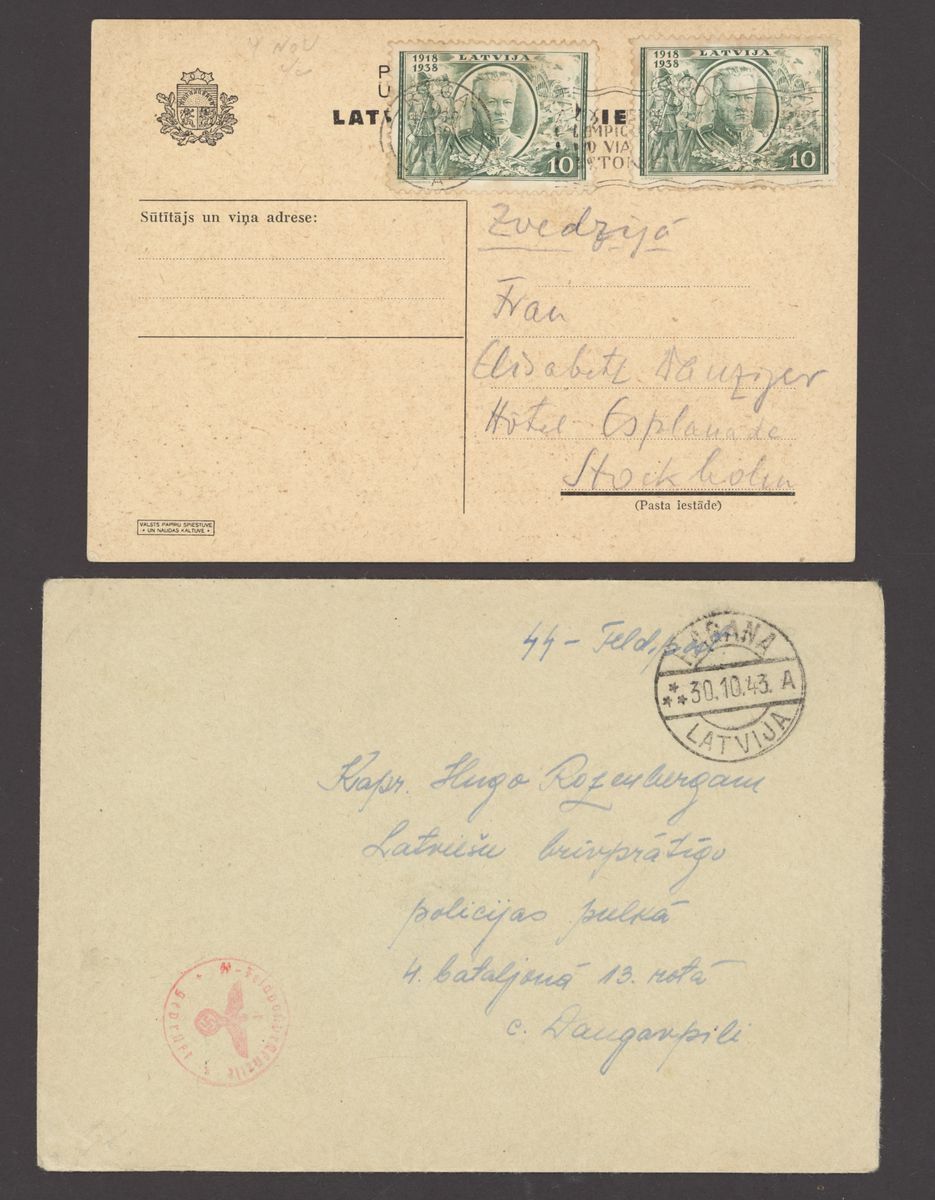 4 NOV
P
U
LAT IE
1918
1938
LATVIJA
10
1918
1938
LATVIJA
10
A
VIA
Sūtītājs un viņa adrese:
Zviedrijā
Frau
Elisabeth Danziger
Hôtel Esplanade
Stockholm
(Pasta iestāde)
VALSTS PAPĪRU SPIESTUVE
• UN NAUDAS KALTUVE •
SS - Feldpost
RAGANA
30.10.43. A
LATVIJA
Kapr. Hugo Rozenbergam
Latviešu brīvprātīgo
policijas pulkā
4. bataljonā 13. rotā
c. Daugavpilī